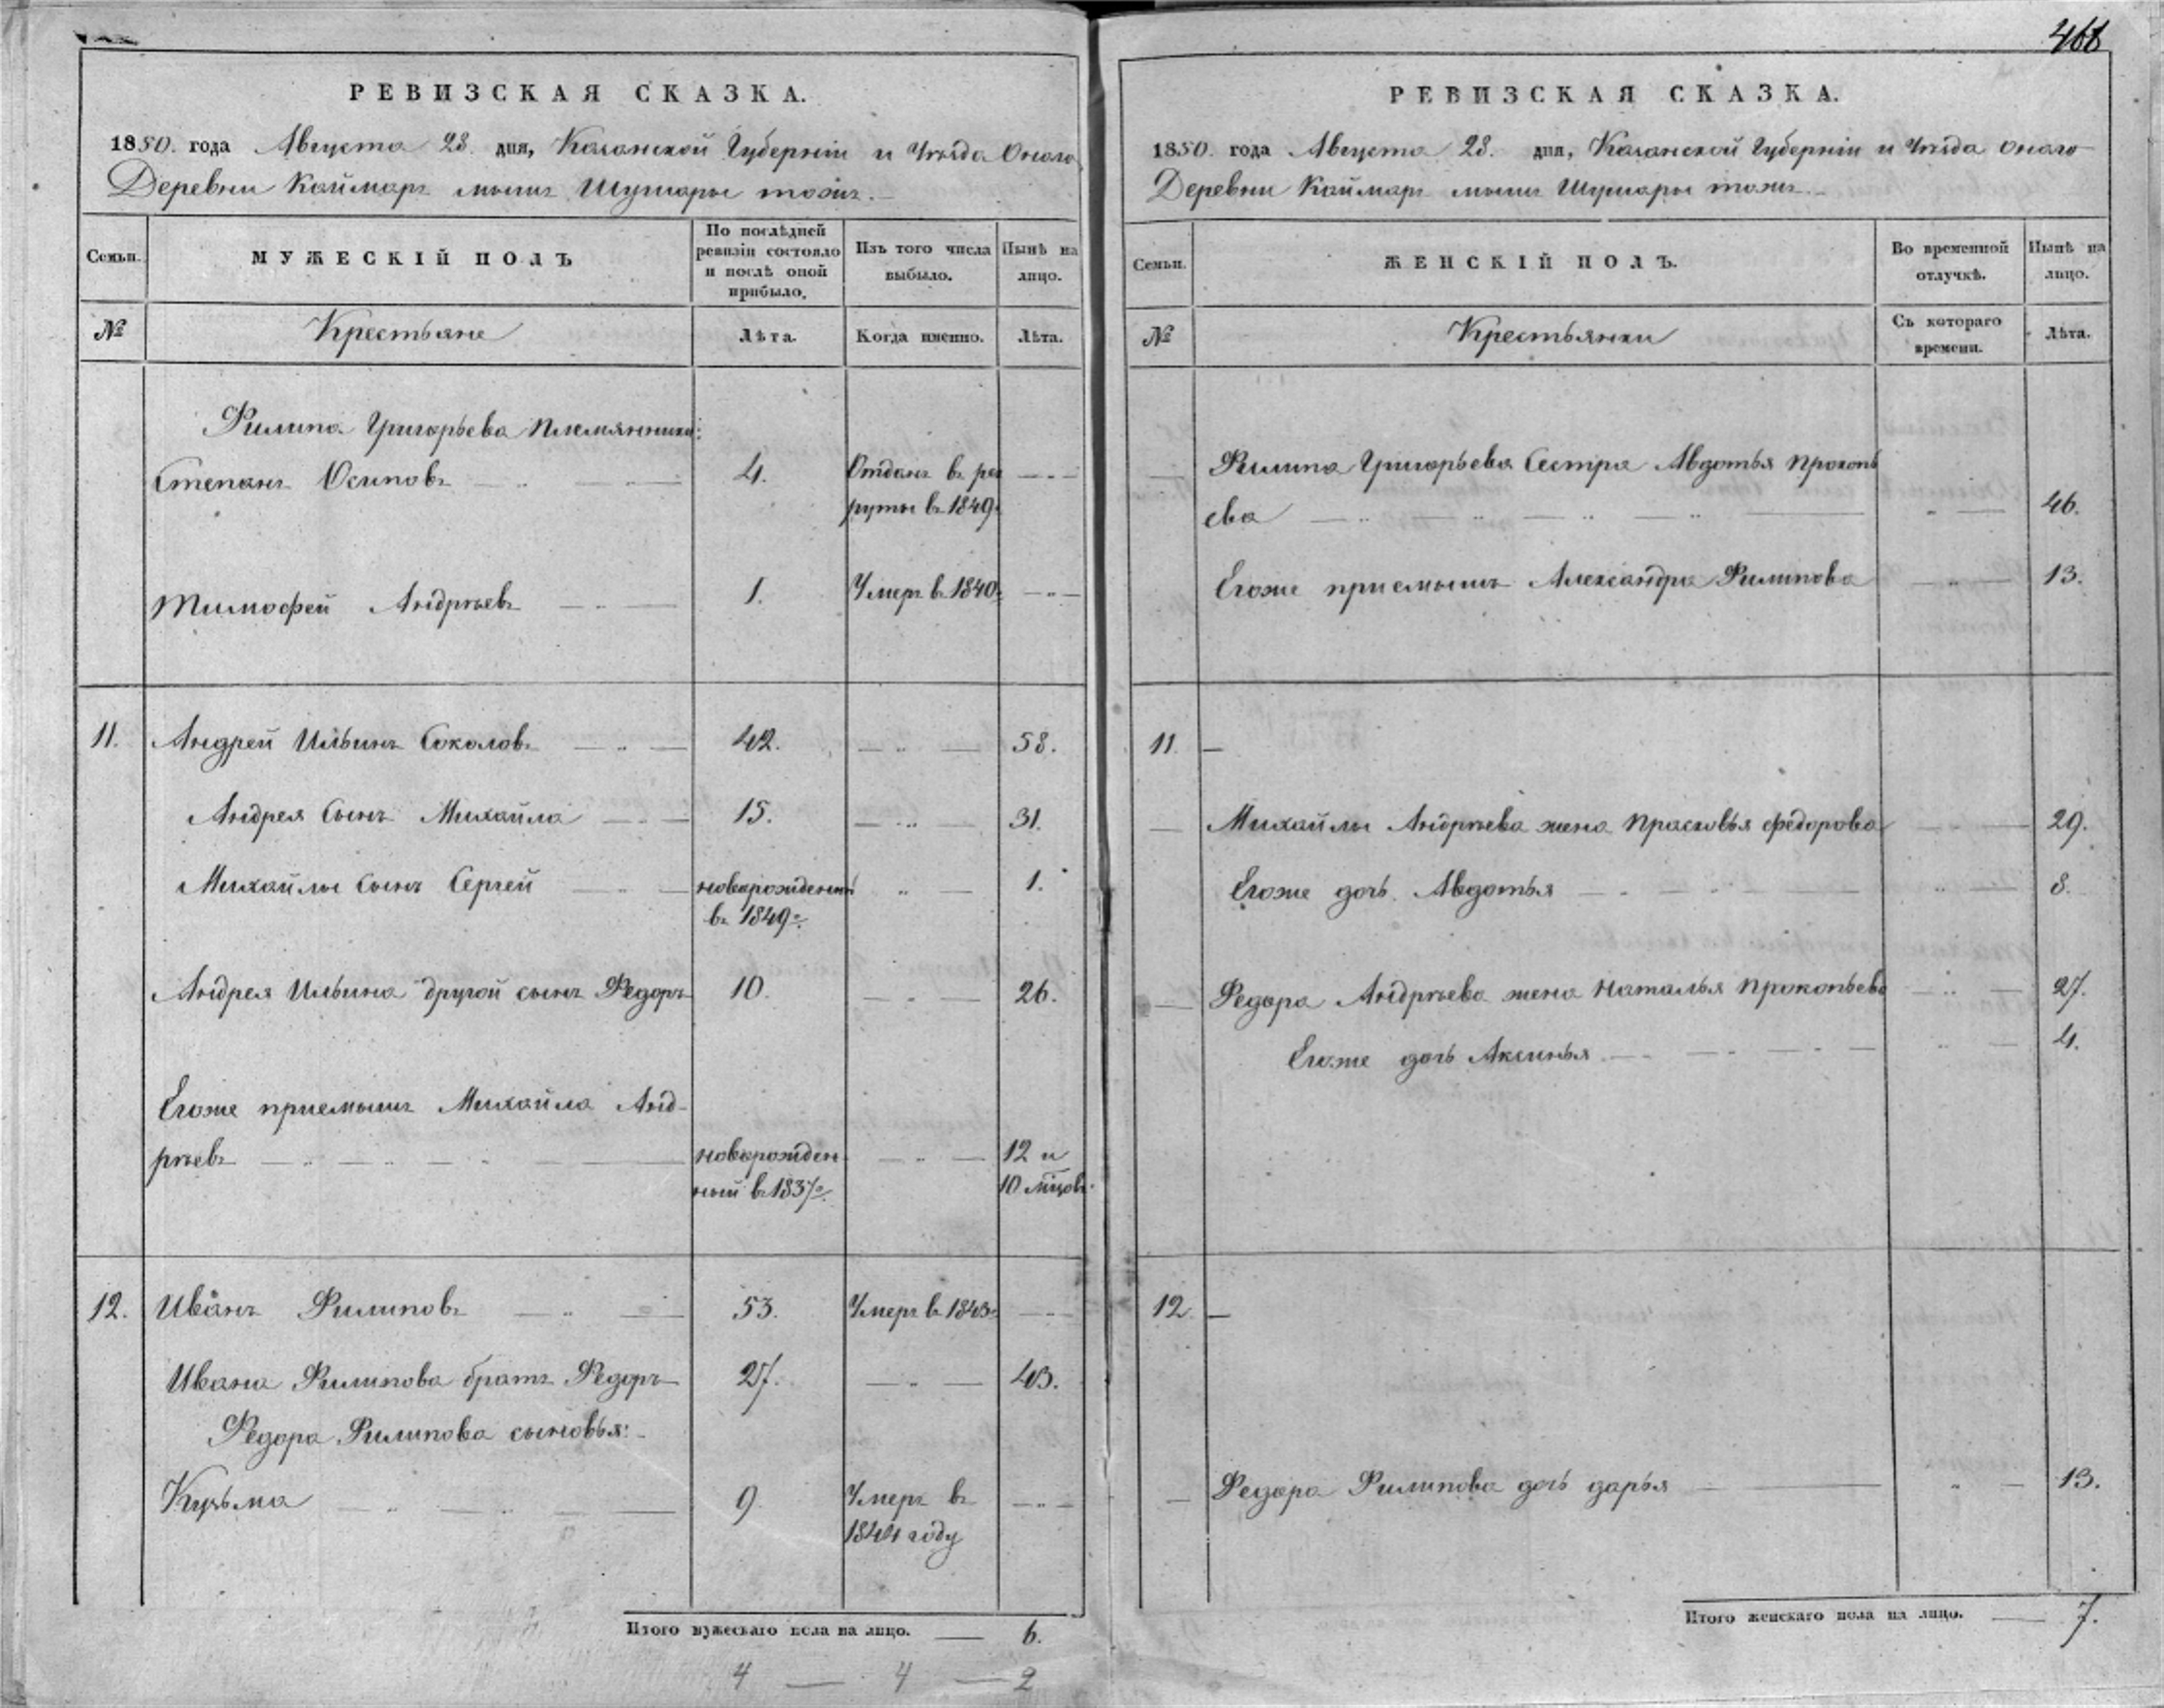 468
РЕВИЗСКАЯ СКАЗКА.
1850. года Августа 28. дня, Казанской Губерніи и Уѣзда Онаго
Деревни Каймаръ мышъ Шушары тожъ.
Семьи.
МУЖЕСКІЙ ПОЛЪ
По послѣдней ревизіи состояло и послѣ оной прибыло.
Изъ того числа выбыло.
Нынѣ на лицо.
№
Крестьяне
Лѣта.
Когда именно.
Лѣта.
Филипа Григорьева племянники:
Степанъ Осиповъ 4. Отданъ въ рек
руты въ 1849.
Тимофей Андрѣевъ 1. Умеръ въ 1840.
11. Андрей Ильинъ Соколовъ 42. 58.
Андрея Сынъ Михайла 15. 31.
Михайлы сынъ Сергей новорожденный 1.
въ 1849.
Андрея Ильина другой сынъ Федоръ 10. 26.
Егоже приемышъ Михайла Анд-
рѣевъ новорожден 12 и
ный в 1837. 10 мцовъ.
12. Иванъ Филиповъ 53. Умеръ в 1843.
Ивана Филипова братъ Федоръ 27. 43.
Федора Филипова сыновья:
Кузьма 9. Умеръ въ
1844 году
Итого мужескаго пола на лицо. 6.
4 — 4 — 2
РЕВИЗСКАЯ СКАЗКА.
1850. года Августа 28. дня, Казанской Губерніи и Уѣзда онаго
Деревни Каймаръ мышъ Шушары тожъ.
Семьи.
ЖЕНСКІЙ ПОЛЪ.
Во временной отлучкѣ.
Нынѣ на лицо.
№
Крестьянки
Съ котораго времени.
Лѣта.
Филипа Григорьева Сестра Авдотья Прокопь
ева 46.
Егоже приемышъ Александра Филипова 13.
11. —
Михайлы Андрѣева жена Прасковья Федорова 29.
Егоже дочь Авдотья 8.
Федора Андрѣева жена Наталья Прокопьева 27.
Егоже дочь Аксинья 4.
12. —
Федора Филипова дочь дарья 13.
Итого женскаго пола на лицо. 7.